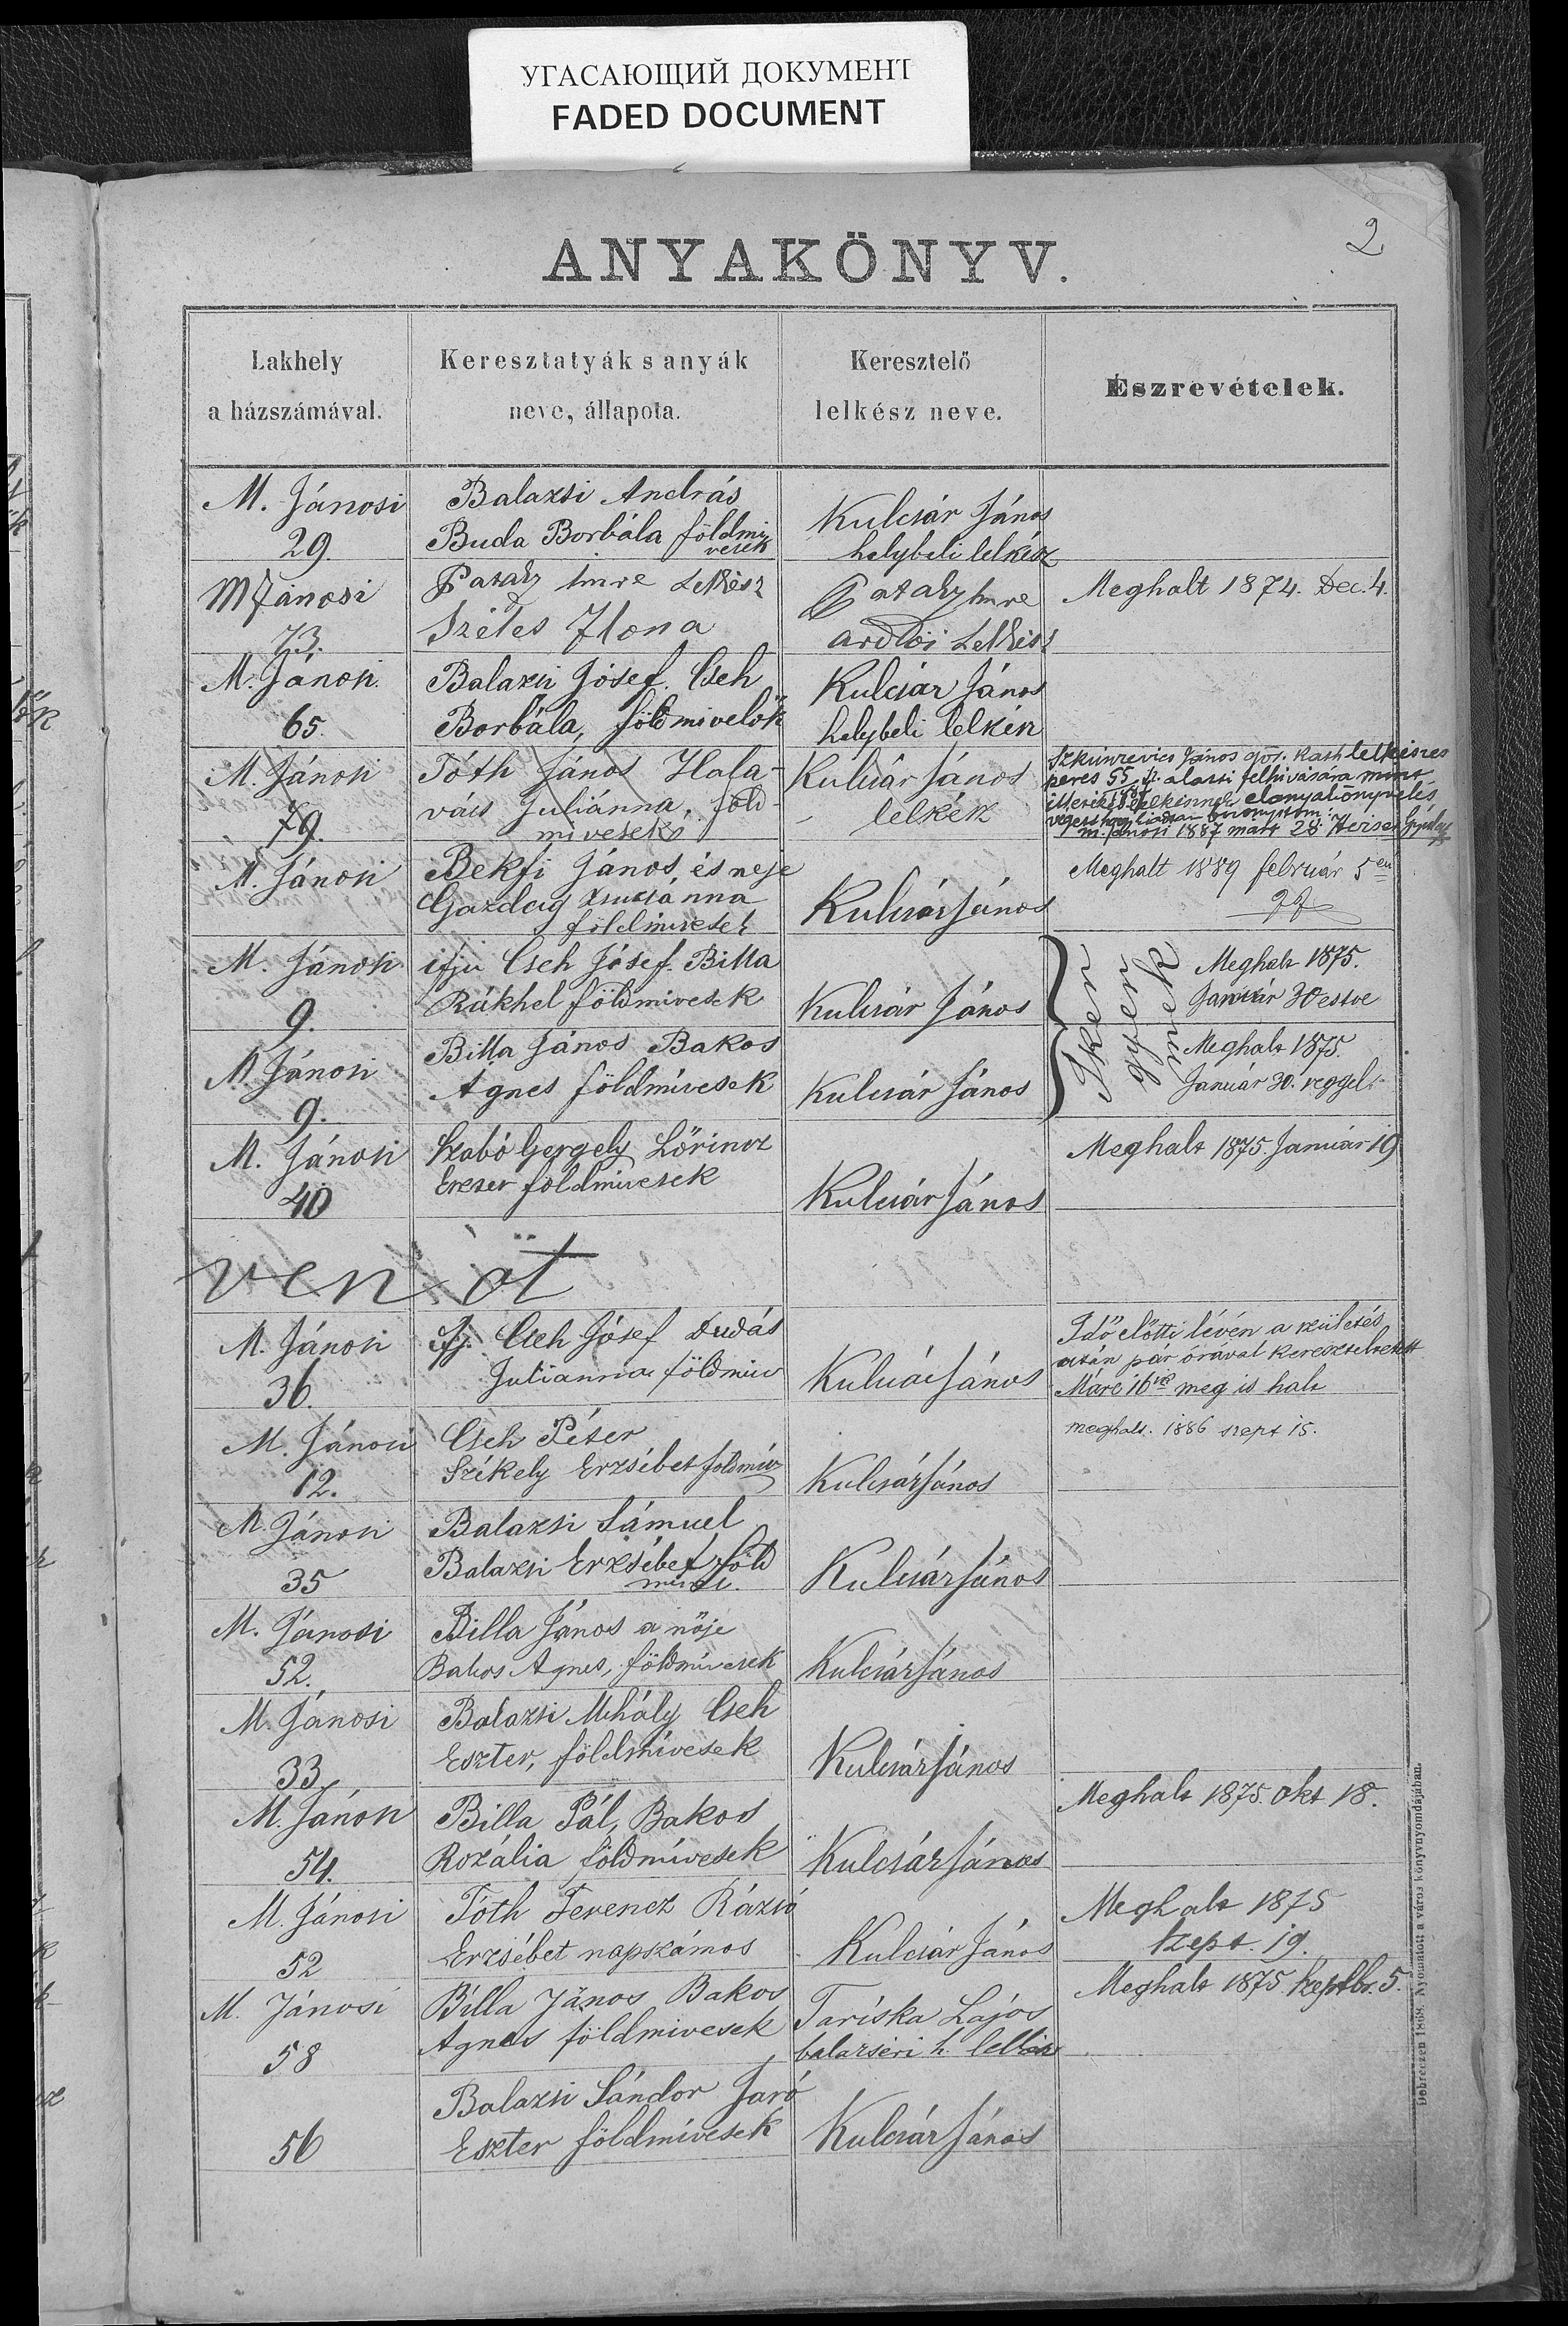 УГАСАЮЩИЙ ДОКУМЕНТ
FADED DOCUMENT
2
ANYAKÖNYV.
Lakhely
a házszámával.
Keresztatyák s anyák
neve, állapota.
Keresztelő
lelkész neve.
Észrevételek.
M. Jánosi
29.
Balazsi András
Buda Borbála földmi
vesek
Kulcsár János
helybeli lelkész
M Jánosi
73.
Pataky Imre Lelkész
Szétes Ilona
Pataky Imre
ardói Lelkész
Meghalt 1874. Dec. 4.
M. Jánosi
65.
Balazsi Jósef. Cseh
Borbála, földmivelők
Kulcsár János
helybeli lelkész
M. Jánosi
79.
Tóth János Hala-
váis Juliánna, föld-
mivesek
Kulcsár János
lelkész
János gör. kath lelkésznek
55 alatti felhivására mint
M. Jánosi 1887 mart 28.
M. Jánosi
Bekfi János, és neje
Gazdag Zsuzsánna
földmivesek
Kulcsár János
Meghalt 1889 február 5én
M. Jánosi
9.
ifju Cseh Jósef. Billa
Rákhel földmivesek
Kulcsár János
Iker
gyer
mek
Meghalt 1875.
Január 30 estve
M Jánosi
9.
Billa János Bakos
Ágnes földmívesek
Kulcsár János
Meghalt 1875.
Január 30. reggel
M. Jánosi
40
Szabó Gergely Lőrincz
Eszter földmivesek
Kulcsár János
Meghalt 1875. Január 19
ven öt
M. Jánosi
36.
ifj. Cseh Jósef Dudás
Julianna földmiv
Kulcsár János
Idő előtti lévén a születés
után pár órával kereszteltetett
Márc 16ra meg is halt
M. Jánosi
12.
Cseh Péter
Székely Erzsébet földmiv
Kulcsár János
meghalt. 1886 szept 15.
M. Jánosi
35
Balazsi Sámuel
Balazsi Erzsébet föld
Kulcsár János
M. Jánosi
52.
Billa János a nője
Bakos Agnes, földmivesek
Kulcsár János
M. Jánosi
33.
Balazsi Mihály Cseh
Eszter, földmívesek
Kulcsár János
M. Jánosi
54.
Billa Pál, Bakos
Rozália földmívesek
Kulcsár János
Meghalt 1875. okt 18.
M. Jánosi
52
Tóth Ferencz Rázsó
Erzsébet napszámos
Kulcsár János
Meghalt 1875
Szept. 19.
M. Jánosi
58
Billa János Bakos
Agnes földmivesek
Tariska Lajos
balazséri h. lelkész
Meghalt 1875. Szeptbr. 5.
56
Balazsi Sándor Jaró
Eszter földmívesek
Kulcsár János
Debreczen 1868. Nyomatott a város könyvnyomdájában.